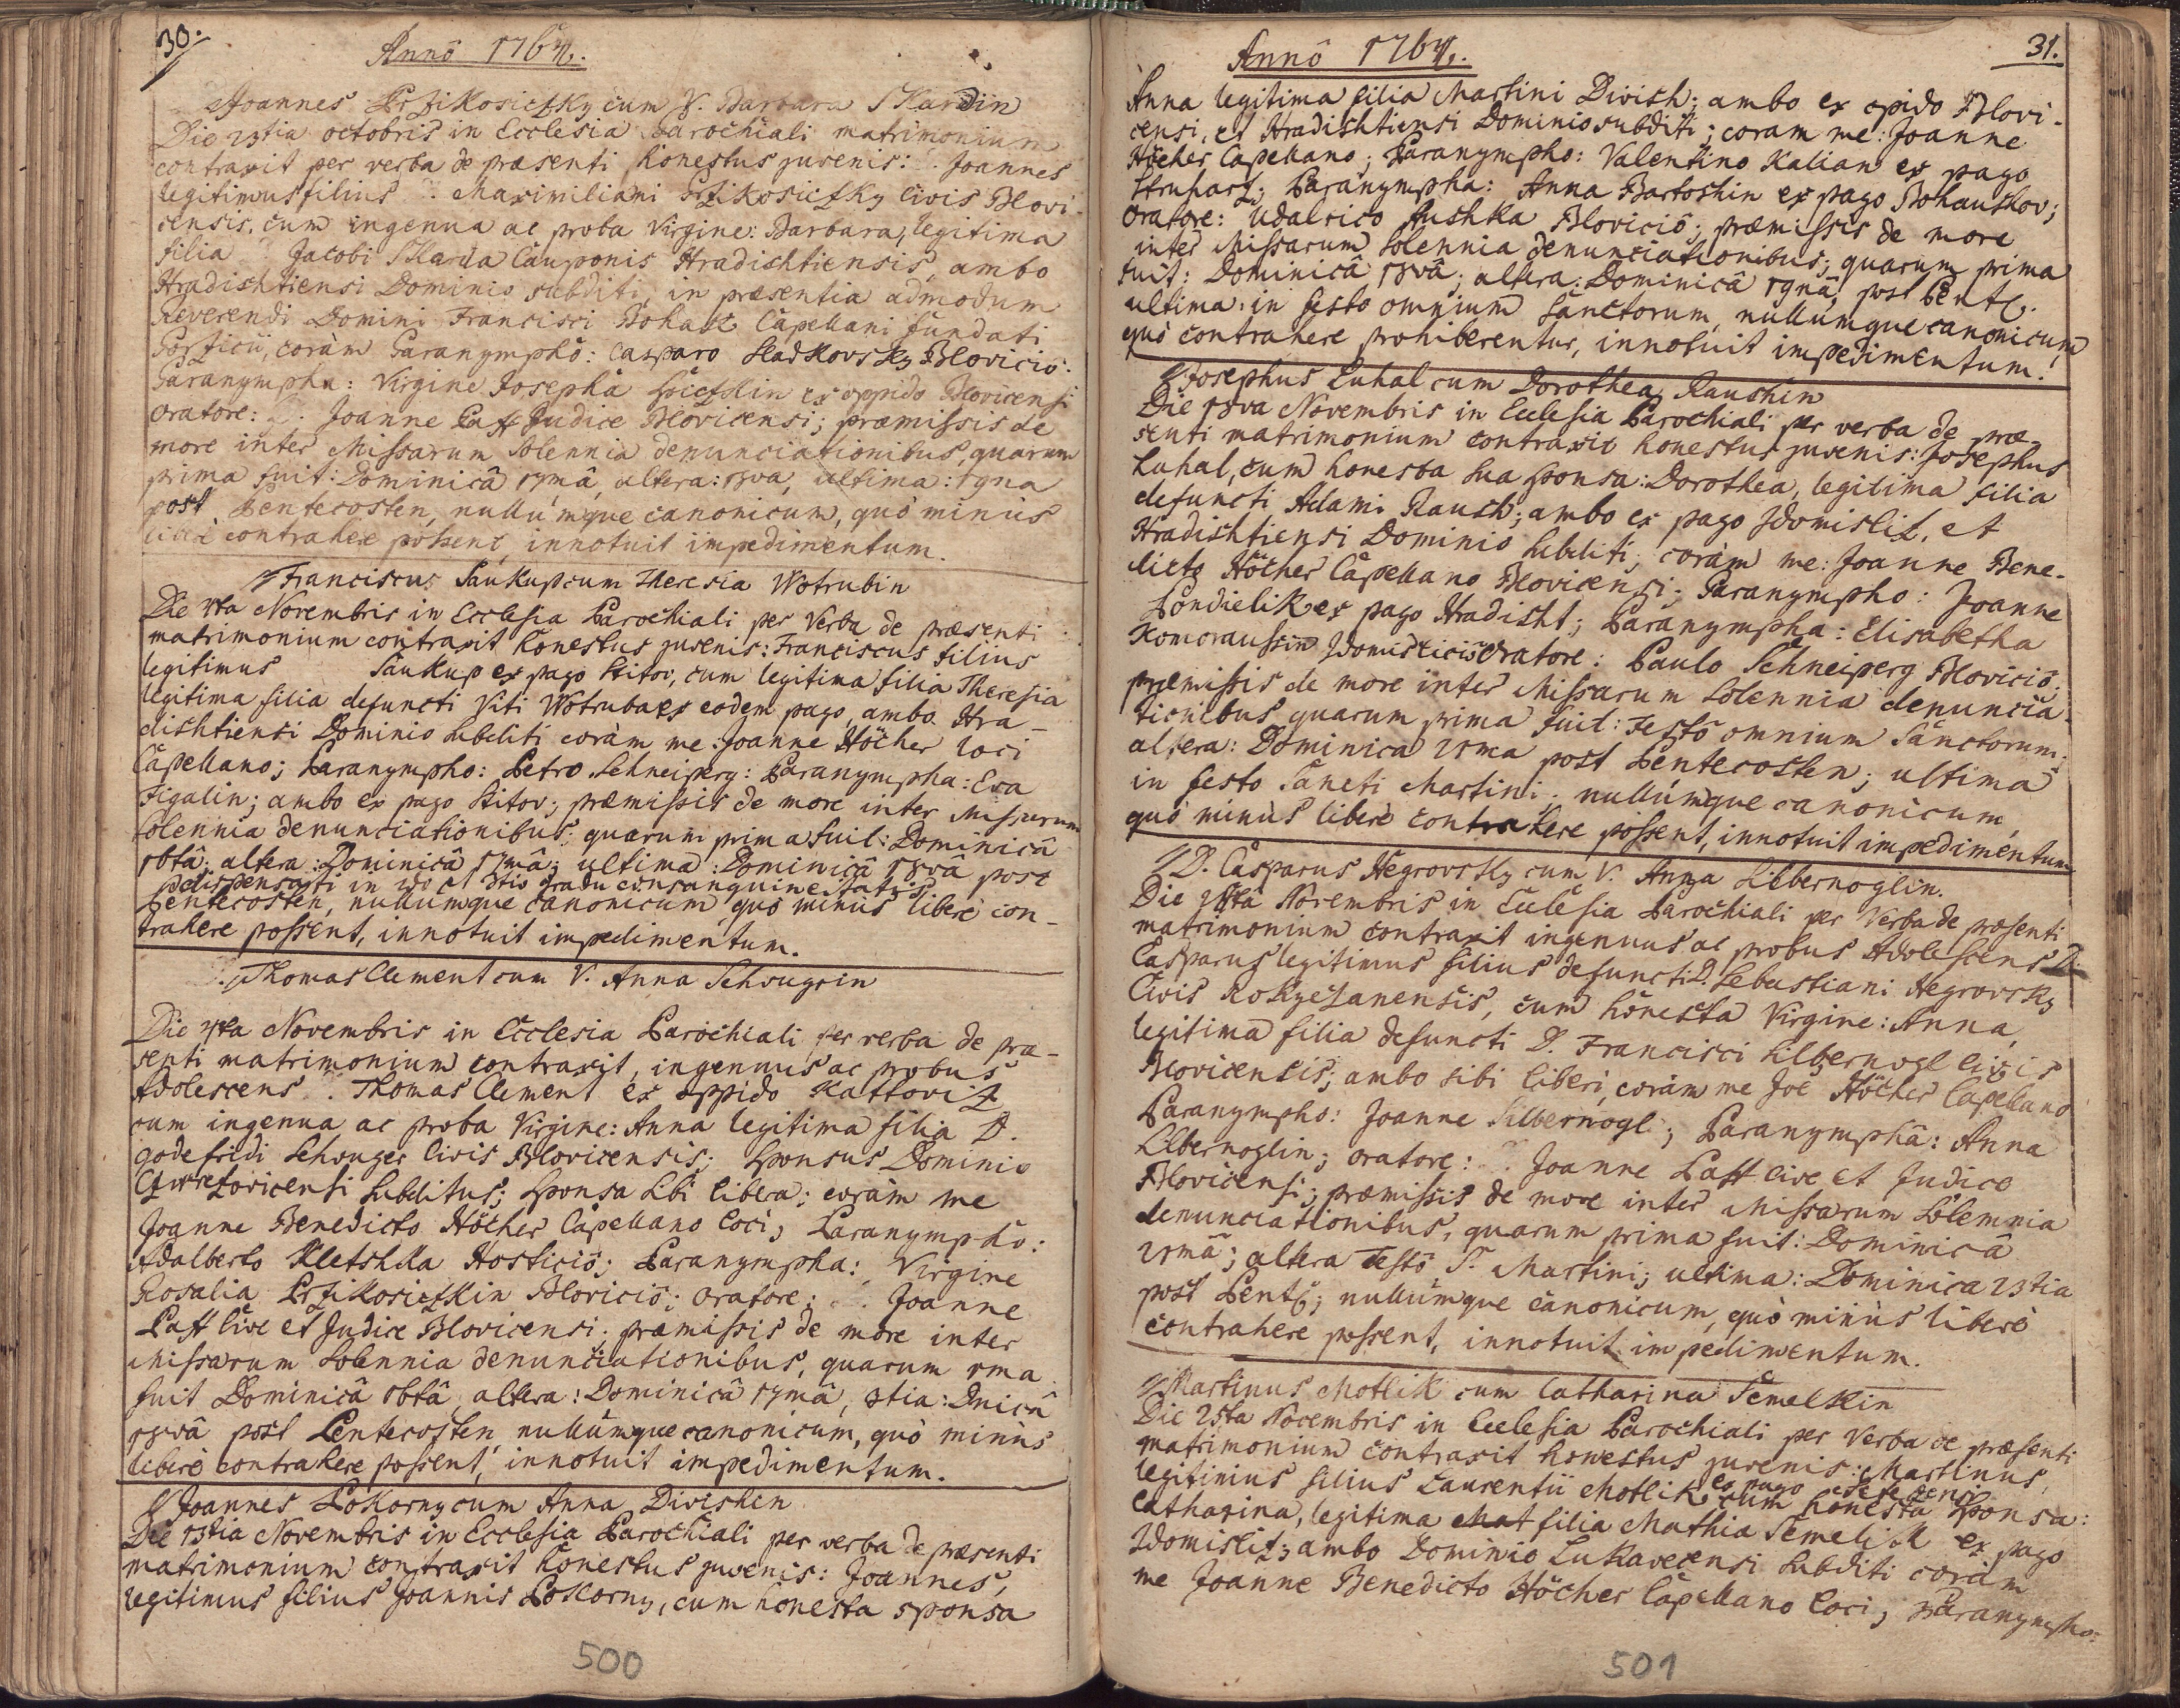 30.
Annô 1764.
Joannes Przikosiczky cum V. Barbara SKardin
Die 23tia octobris in Ecclesia Parochiali matrimonium
contraxit per verba de præsenti honestus juvenis: Joannes
legitimus filius Maximiliani Przikosiczky Civis Blovi-
censis, cum ingenua ac proba Virgine: Barbara, legitima
filia Jacobi SKarda Cauponis Hradishtiensis, ambo
Hradishtiensi Dominio subditi, in præsentia admodum
Reverendi Domini Francisci Bohatz Capellani fundati
coràm Paranymphô: Casparo SladKovsky Blovicio:
Paranympha: Virgine Josepha ex oppido Blovicensi
oratore: Joanne Paff Judice Blovicensi; præmissis de
more inter Missarum solennia denunciationibus, quarum
prima fuit: Dominicâ 17mâ, altera: 18va, ultima: 19na
post Pentecosten, nullúmque canonicum, quò minùs
liberè contrahere possent, innotuit impedimentum.
Franciscus SauKup cum Theresia Wotrubin
Die 4ta Novembris in Ecclesia Parochiali per Verba de præsenti
matrimonium contraxit honestus juvenis: Franciscus filius
legitimus SauKup ex pago Stitov, cum legitima filia Theresia
legitima filia defuncti Viti Wotruba ex eodem pago, ambo Hra-
dishtiensi Dominio subditi coràm me: Joanne Höcher loci
Capellano; Paranympho: Petro Schneiperg: Paranympha: Eva
Figalin; ambo ex pago Stitov; præmissis de more inter Missarum
solennia denunciationibus: quarum prima fuit: Dominicâ
16tâ; altera: Dominicâ 17mâ; ultima: Dominicâ 18vâ post
dispensati in 2do et 3tio gradu consanguinitatis
Pentecosten, nullumque canonicum quò minùs liberè con-
trahere possent, innotuit impedimentum.
Thomas Clement cum V. Anna Schougrin
Die 4ta Novembris in Ecclesia Parochiali per verba de præ-
senti matrimonium contraxit, ingenuus ac probus
Adolescens Thomas Clement ex oppido Kattoviz
cum ingenua ac proba Virgine: Anna legitima filia D.
Godefridi Schouger Civis Blovicensis; Sponsus Dominio
subditus; Sponsa sibi libera; coràm me
Joanne Benedicto Höcher Capellano loci; Paranympho:
Adalberto KletshKa Hosticiô; Paranympha: Virgine
Rosalia PrziKosiczKin Bloviciô; oratore: Joanne
Paff Cive et Judice Blovicensi; præmissis de more inter
Missarum solennia denunciationibus, quarum 1ma
fuit Dominicâ 16tâ, altera: Dominicâ 17mâ, 3tia: Dnicâ
18vâ post Pentecosten nullúmque canonicum, quò minùs
liberè contrahere possent, innotuit impedimentum.
Joannes PoKorny cum Anna Divishin
Die 13tia Novembris in Ecclesia Parochiali per verba de præsenti
matrimonium contraxit honestus juvenis: Joannes,
legitimus filius Joannis PoKorny, cum honesta sponsa
500
Annô 1764.
31.
Anna legitima filia Martini Divish; ambo ex opido Blovi-
censi, et Hradishtiensi Dominio subditi; coram me: Joanne
Höcher Capellano; Paranympho: Valentino Kalian ex pago
Struharz; Paranympha: Anna Bartoshin ex pago Bohaushov;
Oratore: Udalrico Bloviciô; præmissis de more
inter Missarum solennia denunciationibus; quarum prima
fuit: Dominicâ 18vâ; altera: Dominicâ 19nâ; post Pentc.
ultima: in festo omnium Sanctorum, nullumque canonicum,
quò contrahere prohiberentur, innotuit impedimentum.
Josephus Luhal cum Dorothea Raushin
Die 18va Novembris in Ecclesia Parochiali per verba de præ-
senti matrimonium contraxit honestus juvenis: Josephus
Luhal, cum honesta sua sponsa: Dorothea, legitima filia
defuncti Adami Raush; ambo ex pago Zdomisliz, et
Hradishtiensi Dominio subditi, coràm me: Joanne Bene-
dicto Höcher Capellano Blovicensi; Paranympho: Joanne
PondieliK ex pago Hradisht; Paranympha: Elisabetha
Komoraussin Zdomisliciô oratore: Paulo Schneiperg Bloviciô;
præmissis de more inter Missarum solennia denuncia-
tionibus quarum prima fuit: Festô omnium Sanctorum;
altera: Dominica 21ma post Pentecosten; ultima
in festo Sancti Martini; nullúmque canonicum,
quò minùs liberè contrahere possent, innotuit impedimentum.
D. Casparus Negrovsky cum V. Anna Silbernoglin.
Die Novembris in Ecclesia Parochiali per Verba de præsenti
matrimonium contraxit ingenuus ac probus Adolescens D.
Casparus legitimus filius defuncti D. Sebastiani Negrovsky
Civis RoKyczanensis, cum honesta Virgine: Anna,
legitima filia defuncti D. Francisci Silbernogl Civis
Blovicensis; ambo sibi liberi, coràm me Joe Höcher Capellano
Paranympho: Joanne Silbernogl; Paranymphâ: Anna
Silbernoglin; oratore: Joanne Paff Cive et Judice
Blovicensi; præmissis de more inter Missarum solemnia
denunciationibus, quarum prima fuit: Dominicâ
21mâ; altera Festô S. Martini; ultima: Dominica 23tia
post Pentc; nullúmque canonicum, quò minùs liberè
contrahere possent, innotuit impedimentum.
Martinus MotliK cum Catharina SemelKin
Die 25ta Novembris in Ecclesia Parochiali per Verba de præsenti
matrimonium contraxit honestus juvenis: Martinus,
legitimus filius Laurentii MotliK ex pago cum honesta sponsa:
Catharina, legitima filia Mathia SemeliK ex pago
Zdomisliz; ambo Dominio LuKavecensi subditi coràm
me Joanne Benedicto Höcher Capellano loci; Paranympho:
501